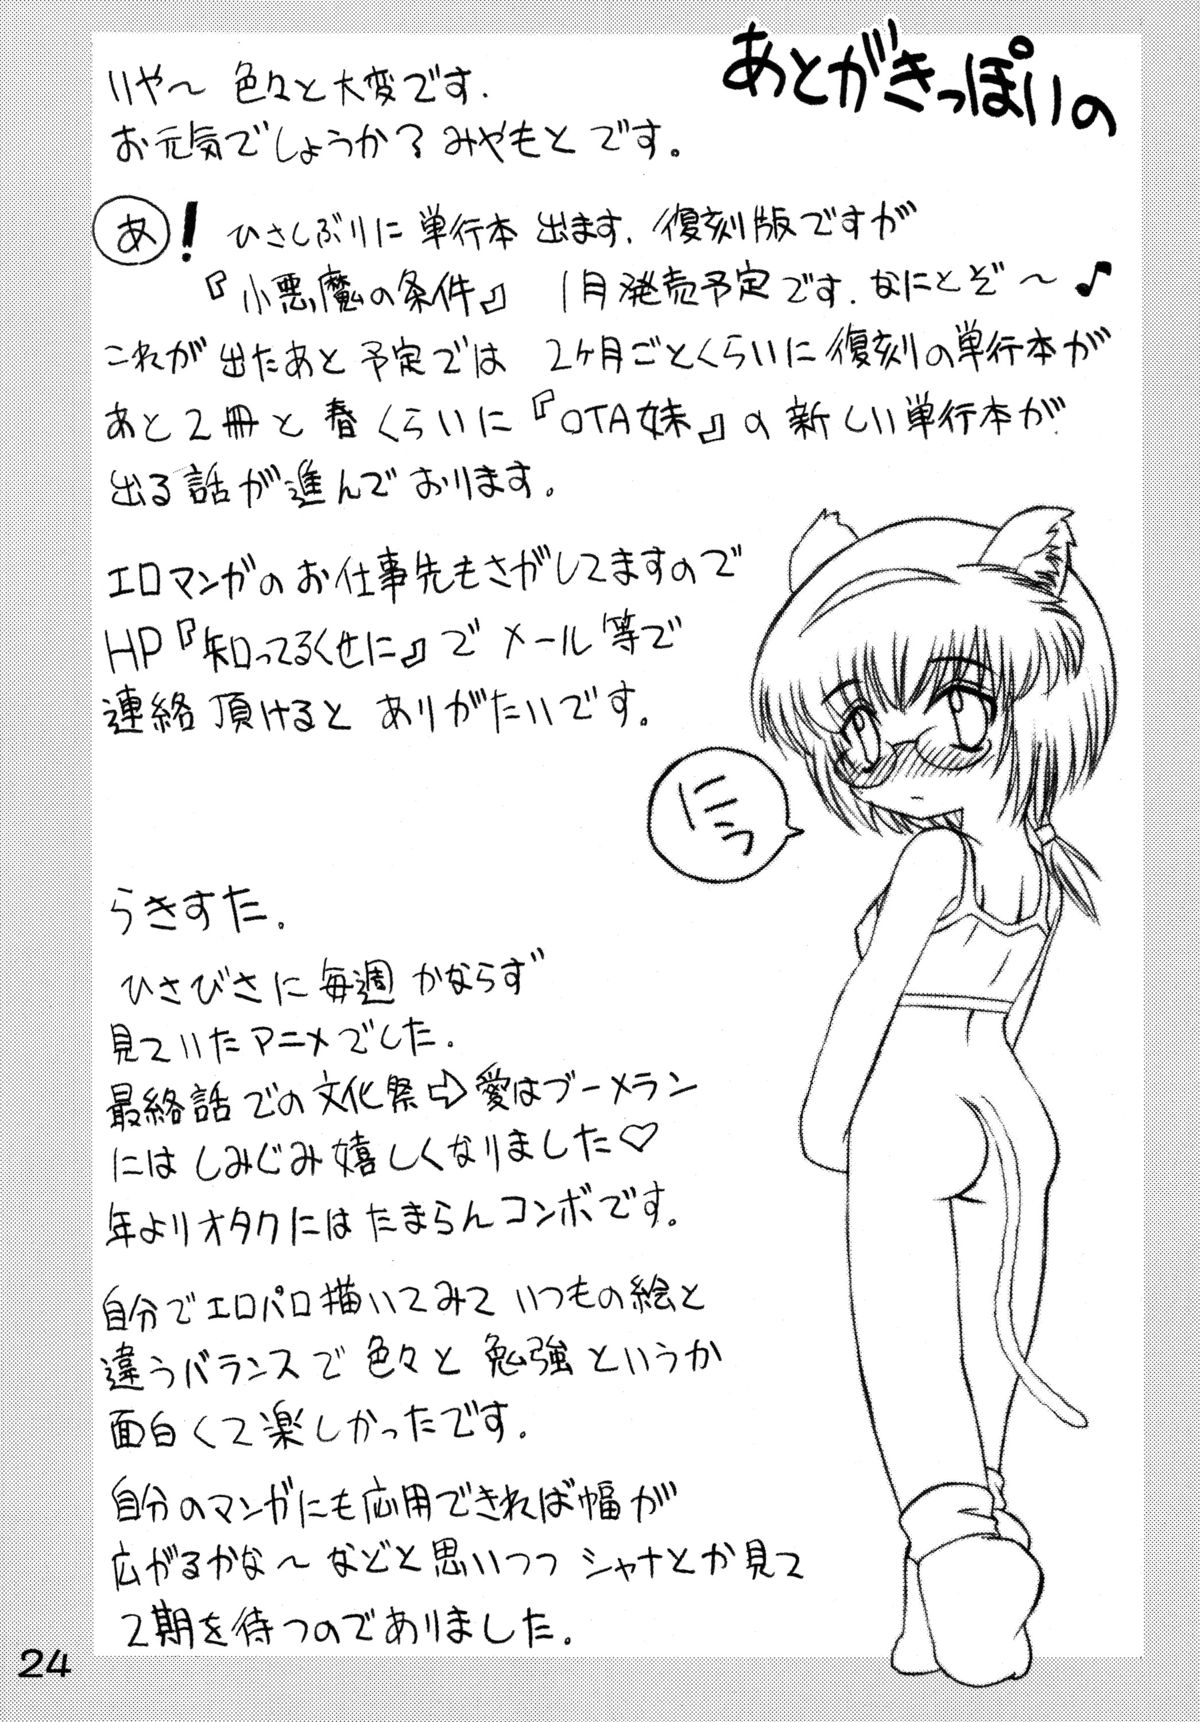 あとがきっぽいの
いや～ 色々と大変です.
お元気でしょうか? みやもと です。
あ! ひさしぶりに 単行本 出ます. 復刻版ですが
『小悪魔の条件』 1月発売予定です. なにとぞ～♪
これが 出たあと 予定では 2ケ月ごとくらいに 復刻の単行本が
あと2冊と 春くらいに『OTA妹』の 新しい単行本が
出る話が進んでおります。
エロマンガのお仕事先もさがしてますので
HP『知ってるくせに』で メール等で
連絡 頂けると ありがたいです。
にうっ
らきすた.
ひさびさに 毎週 かならず
見ていたアニメでした.
最終話での文化祭⇨愛はブーメラン
にはしみじみ嬉しくなりました♡
年よりオタクにはたまらんコンボです。
自分でエロパロ描いてみて いつもの絵と
違うバランスで 色々と 勉強というか
面白くて楽しかったです.
自分のマンガにも応用できれば幅が
広がるかな～などと思いつつ シャナとか見て
2期を待つのでありました.
24